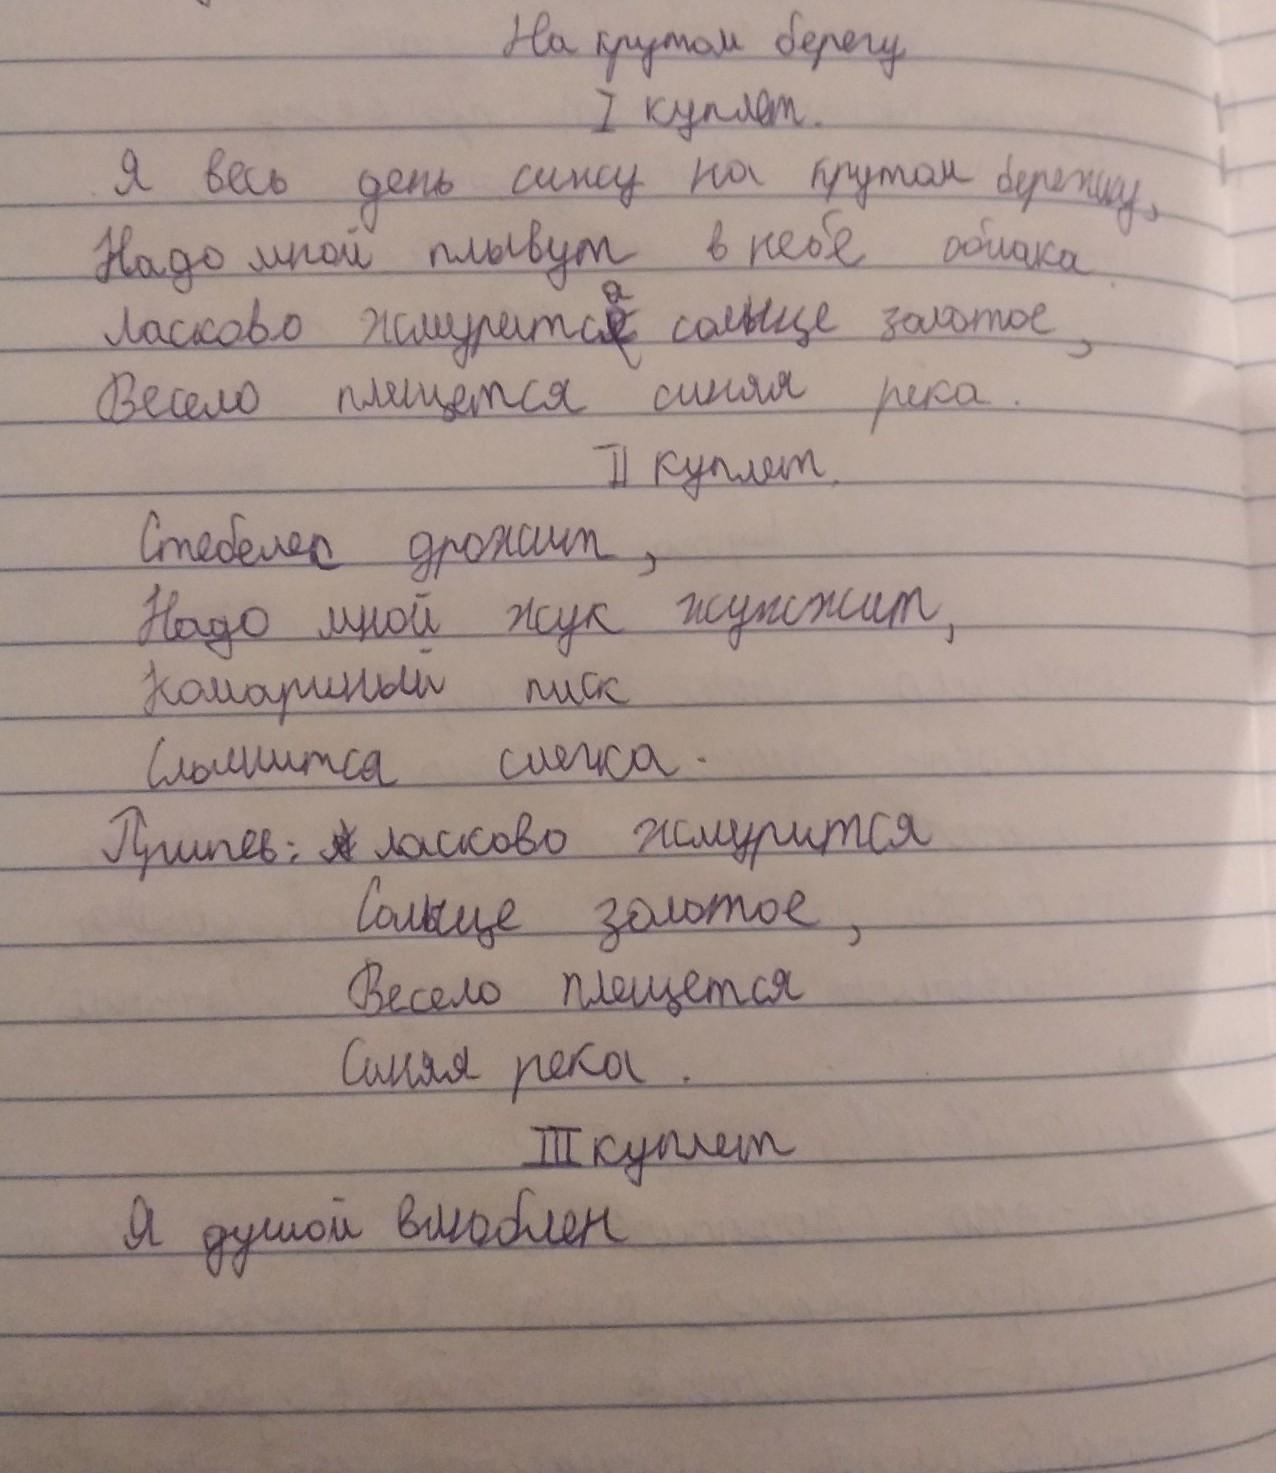 На крутом берегу
I куплет.
Я весь день сижу на крутом бережку,
Надо мной плывут в небе облака
Ласково жмурится солнце золотое,
Весело плещется синяя река.
II куплет.
Стебелек дрожит,
Надо мной жук жужжит,
Комариный писк
Слышится слегка.
Припев: ласково жмурится
Солнце золотое,
Весело плещется
Синяя река.
III куплет
Я душой влюблен